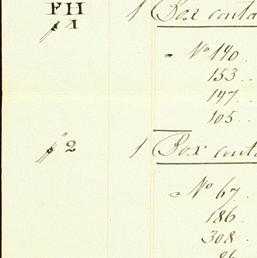 FH 1 Box conta
№ 1 № 140
153
147
105
№ 2 1 Box conta
№ 67
186
308
86